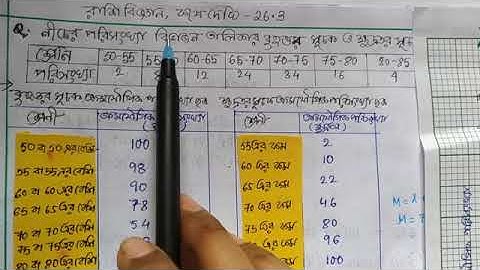 রাশি বিজ্ঞান, কষে দেখি - 26·3
Q. নীচের পরিসংখ্যা বিভাজন তালিকার বৃহত্তর সূচক ও ক্ষুদ্রতর সূচ
শ্রেণি 50-55 60-65 65-70 70-75 75-80 80-85
পরিসংখ্যা 2 12 24 34 16 4
বৃহত্তর সূচক ক্রমযৌগিক পরিসংখ্যা ছক ক্ষুদ্রতর সূচক ক্রমযৌগিক পরিসংখ্যা ছক
শ্রেণি ক্রমযৌগিক পরিসংখ্যা শ্রেণি ক্রমযৌগিক পরিসংখ্যা
50 বা 50 এর বেশি 100 55 এর কম 2
55 বা 55 এর বেশি 98 60 এর কম 10
60 বা 60 এর বেশি 90 65 এর কম 22
65 বা 65 এর বেশি 78 70 এর কম 46
70 বা 70 এর বেশি 54 75 এর কম 80
75 বা 75 এর বেশি এর কম 96
80 বা 80 এর বেশি এর কম 100